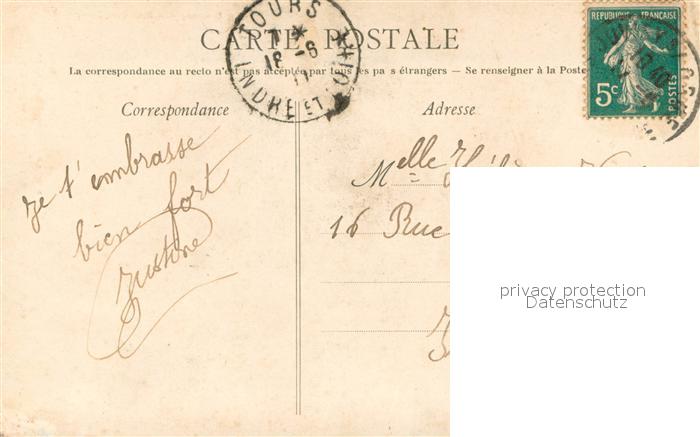 CARTE POSTALE
La correspondance au recto n'est pas acceptée par tous les pa s étrangers — Se renseigner à la Poste
TOURS
18 -6
INDRE ET
REPUBLIQUE FRANÇAISE
5c
POSTES
Correspondance
Adresse
je t'embrasse
bien fort
Justine
Melle
16 Rue
privacy protection
Datenschutz